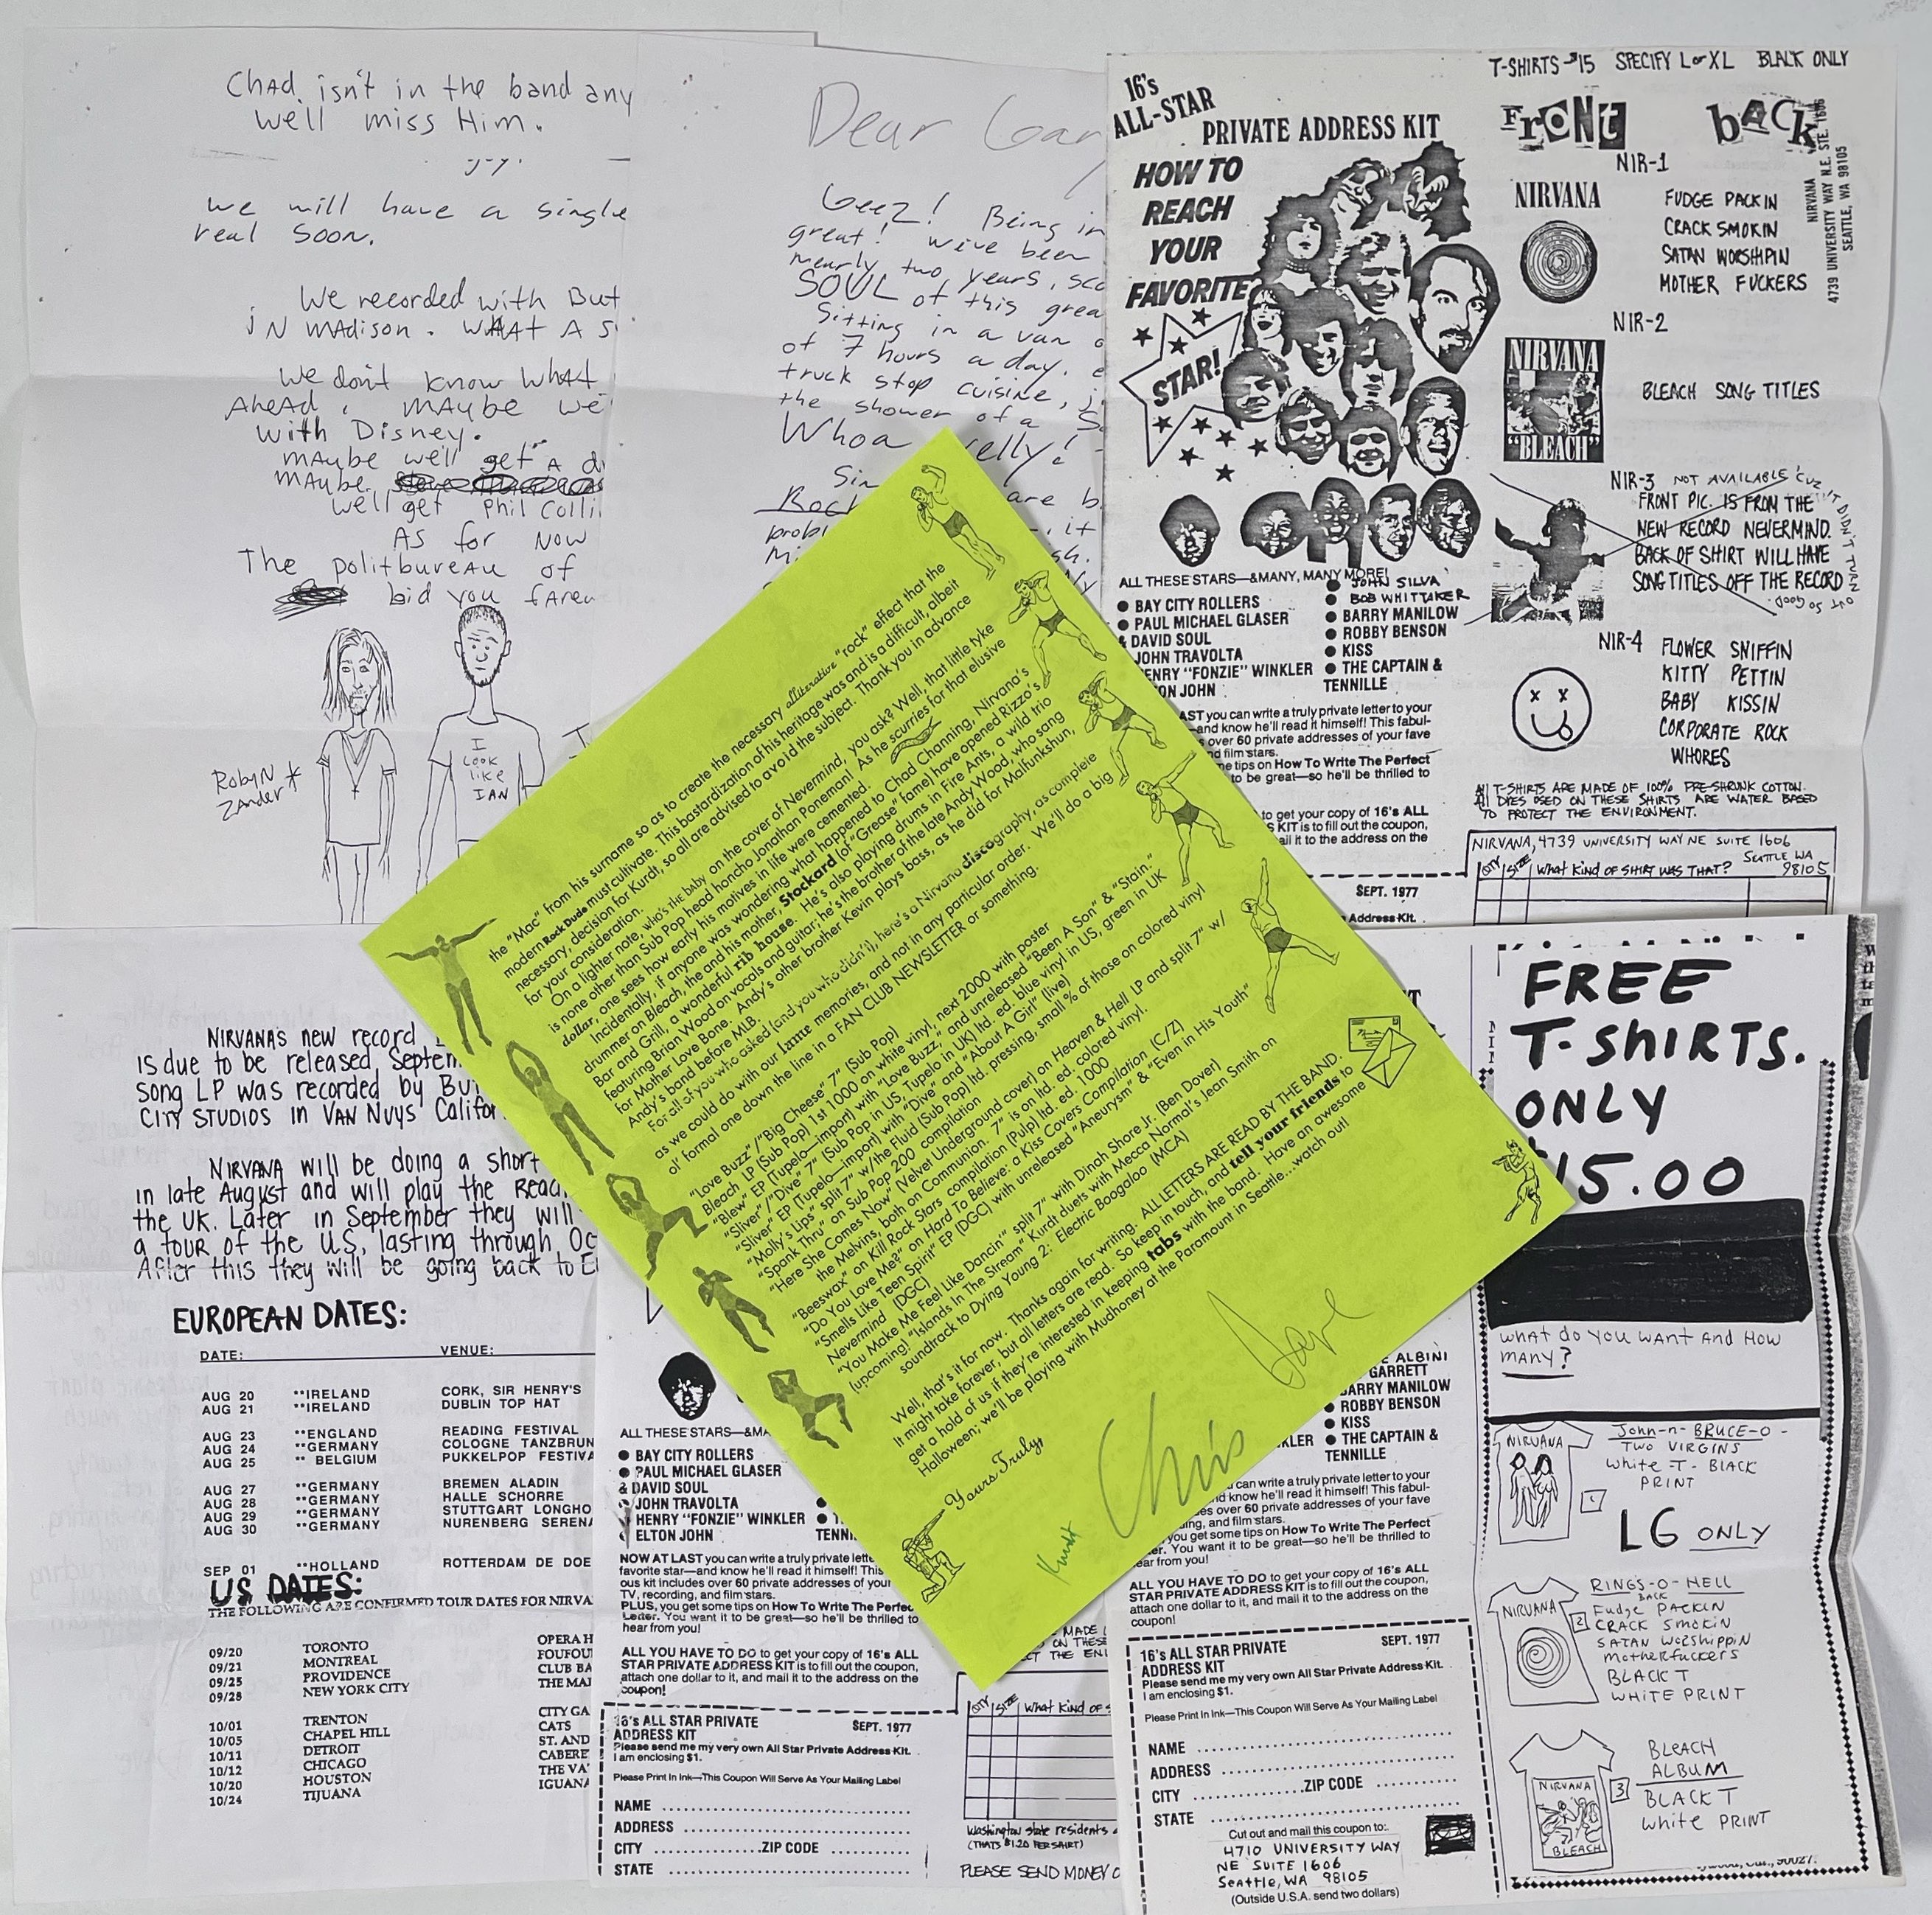 Chad isn't in the band any
we'll miss Him.
we will have a single
real soon.
We recorded with But
iN MAdison. WHAt A S
We don't know What
AHeAd, MAybe we
with Disney.
MAybe we'll get A d
MAybe
we'll get Phil Colli
As for Now
The politbureau of
bid you farew
RobyN
ZANder
I
Look
like
IAN
Dear Gar
Geez! Being in
great! We've been
nearly two years, sco
SOUL of this grea
Sitting in a van o
of 7 hours a day, e
truck stop cuisine, j
the shower of a S
Whoa
elly!
Sin
are b
Rock
probl
it
16's
ALL-STAR
PRIVATE ADDRESS KIT
HOW TO
REACH
YOUR
FAVORITE
STAR!
ALL THESE STARS—&MANY, MANY MORE!
● BAY CITY ROLLERS
● PAUL MICHAEL GLASER
& DAVID SOUL
JOHN TRAVOLTA
ENRY "FONZIE" WINKLER
ON JOHN
● JOHN SILVA
● BOB WHITTAKER
● BARRY MANILOW
● ROBBY BENSON
● KISS
● THE CAPTAIN &
TENNILLE
AST you can write a truly private letter to your
—and know he'll read it himself! This fabul-
over 60 private addresses of your fave
nd film stars.
me tips on How To Write The Perfect
to be great—so he'll be thrilled to
to get your copy of 16's ALL
S KIT is to fill out the coupon,
ail it to the address on the
SEPT. 1977
Address Kit.
T-SHIRTS-$15 SPECIFY L or XL BLACK ONLY
FRONT
bACK
NIRVANA
4739 UNIVERSITY WAY N.E. STE. 1606
SEATTLE, WA 98105
NIR-1
NIRVANA
FUDGE PACKIN
CRACK SMOKIN
SATAN WORSHIPIN
MOTHER FUCKERS
NIR-2
NIRVANA
"BLEACH"
BLEACH SONG TITLES
NIR-3 NOT AVAILABLE! CUZ IT DIDN'T TURN OUT SO GOOD.
FRONT PIC. IS FROM THE
NEW RECORD NEVERMIND.
BACK OF SHIRT WILL HAVE
SONG TITLES OFF THE RECORD
NIR-4
FLOWER SNIFFIN
KITTY PETTIN
BABY KISSIN
CORPORATE ROCK
WHORES
All T-SHIRTS ARE MADE OF 100% PRE-SHRUNK COTTON.
All DYES USED ON THESE SHIRTS ARE WATER BASED
TO PROTECT THE ENVIRONMENT.
NIRVANA, 4739 UNIVERSITY WAY NE SUITE 1606
SEATTLE WA
98105
QTY SIZE WHAT KIND OF SHIRT WAS THAT?
the "Mac" from his surname so as to create the necessary alliterative "rock" effect that the
modern Rock Dude must cultivate. This bastardization of his heritage was and is a difficult, albeit
necessary, decision for Kurdt, so all are advised to avoid the subject. Thank you in advance
for your consideration.
On a lighter note, who's the baby on the cover of Nevermind, you ask? Well, that little tyke
is none other than Sub Pop head honcho Jonathan Poneman! As he scurries for that elusive
dollar, one sees how early his motives in life were cemented.
Incidentally, if anyone was wondering what happened to Chad Channing, Nirvana's
drummer on Bleach, the and his mother, Stockard (of "Grease" fame) have opened Rizzo's
Bar and Grill, a wonderful rib house. He's also playing drums in Fire Ants, a wild trio
featuring Brian Wood on vocals and guitar; he's the brother of the late Andy Wood, who sang
for Mother Love Bone. Andy's other brother Kevin plays bass, as he did for Malfunkshun,
Andy's band before MLB.
For all of you who asked (and you who didn't), here's a Nirvana discography, as complete
as we could do with our lame memories, and not in any particular order. We'll do a big
ol' formal one down the line in a FAN CLUB NEWSLETTER or something.
"Love Buzz"/"Big Cheese" 7" (Sub Pop)
Bleach LP (Sub Pop) 1st 1000 on white vinyl, next 2000 with poster
"Blew" EP (Tupelo—import) with "Love Buzz," and unreleased "Been A Son" & "Stain."
"Sliver"/"Dive" 7" (Sub Pop in US, Tupelo in UK) ltd. ed. blue vinyl in US, green in UK
"Sliver" EP (Tupelo—import) with "Dive" and "About A Girl" (live)
"Molly's Lips" split 7" w/the Fluid (Sub Pop) ltd. pressing, small % of those on colored vinyl
"Spank Thru" on Sub Pop 200 compilation
"Here She Comes Now" (Velvet Underground cover) on Heaven & Hell LP and split 7" w/
the Melvins, both on Communion. 7" is on ltd. ed. colored vinyl.
"Beeswax" on Kill Rock Stars compilation (Pulp) ltd. ed. 1000
"Do You Love Me?" on Hard To Believe: a Kiss Covers Compilation (C/Z)
"Smells Like Teen Spirit" EP (DGC) with unreleased "Aneurysm" & "Even in His Youth"
Nevermind (DGC)
"You Make Me Feel Like Dancin'" split 7" with Dinah Shore Jr. (Ben Dover)
(upcoming) "Islands In The Stream" Kurdt duets with Mecca Normal's Jean Smith on
soundtrack to Dying Young 2: Electric Boogaloo (MCA)
Well, that's it for now. Thanks again for writing. ALL LETTERS ARE READ BY THE BAND.
It might take forever, but all letters are read. So keep in touch, and tell your friends to
get a hold of us if they're interested in keeping tabs with the band. Have an awesome
Halloween; we'll be playing with Mudhoney at the Paramount in Seattle...watch out!
Yours Truly,
Kurdt
Chris
Dave
NIRVANA's new record
is due to be released Septem
song LP was recorded by Bu
City Studios in Van Nuys Califor
NIRVANA will be doing a short
in late August and will play the Read
the UK. Later in September they will
a tour of the U.S, lasting through Oc
After this they will be going back to E
EUROPEAN DATES:
DATE: VENUE:
AUG 20 **IRELAND CORK, SIR HENRY'S
AUG 21 **IRELAND DUBLIN TOP HAT
AUG 23 **ENGLAND READING FESTIVAL
AUG 24 **GERMANY COLOGNE TANZBRUN
AUG 25 ** BELGIUM PUKKELPOP FESTIVA
AUG 27 **GERMANY BREMEN ALADIN
AUG 28 **GERMANY HALLE SCHORRE
AUG 29 **GERMANY STUTTGART LONGHO
AUG 30 **GERMANY NURENBERG SERENA
SEP 01 **HOLLAND ROTTERDAM DE DOE
US DATES:
THE FOLLOWING ARE CONFIRMED TOUR DATES FOR NIRVA
09/20 TORONTO OPERA H
09/21 MONTREAL FOUFOU
09/25 PROVIDENCE CLUB BA
09/28 NEW YORK CITY THE MA
10/01 TRENTON CITY GA
10/05 CHAPEL HILL CATS
10/11 DETROIT ST. AND
10/12 CHICAGO CABERE
10/20 HOUSTON THE VA
10/24 TIJUANA IGUANA
ALL THESE STARS—&MA
● BAY CITY ROLLERS
● PAUL MICHAEL GLASER
& DAVID SOUL
● JOHN TRAVOLTA
● HENRY "FONZIE" WINKLER
● ELTON JOHN
TENN
NOW AT LAST you can write a truly private lette
favorite star—and know he'll read it himself! This
ous kit includes over 60 private addresses of your
TV, recording, and film stars.
PLUS, you get some tips on How To Write The Perfec
Letter. You want it to be great—so he'll be thrilled to
hear from you!
ALL YOU HAVE TO DO to get your copy of 16's ALL
STAR PRIVATE ADDRESS KIT is to fill out the coupon,
attach one dollar to it, and mail it to the address on the
coupon!
16's ALL STAR PRIVATE SEPT. 1977
ADDRESS KIT
Please send me my very own All Star Private Address Kit.
I am enclosing $1.
Please Print In Ink—This Coupon Will Serve As Your Mailing Label
NAME
ADDRESS
CITY ZIP CODE
STATE
MADE
ON THESE
CT THE EN
QTY SIZE WHAT KIND OF S
Washington state residents
(THATS $1.20 PER SHIRT)
PLEASE SEND MONEY O
E ALBINI
GARRETT
BARRY MANILOW
● ROBBY BENSON
● KISS
● THE CAPTAIN &
TENNILLE
KLER
can write a truly private letter to your
nd know he'll read it himself! This fabul-
es over 60 private addresses of your fave
ing, and film stars.
you get some tips on How To Write The Perfect
er. You want it to be great—so he'll be thrilled to
ear from you!
ALL YOU HAVE TO DO to get your copy of 16's ALL
STAR PRIVATE ADDRESS KIT is to fill out the coupon,
attach one dollar to it, and mail it to the address on the
coupon!
16's ALL STAR PRIVATE SEPT. 1977
ADDRESS KIT
Please send me my very own All Star Private Address Kit.
I am enclosing $1.
Please Print In Ink—This Coupon Will Serve As Your Mailing Label
NAME
ADDRESS
CITY ZIP CODE
STATE
Cut out and mail this coupon to:
4710 UNIVERSITY WAY
NE SUITE 1606
Seattle, WA 98105
(Outside U.S.A. send two dollars)
FREE
T-SHIRTS.
ONLY
$15.00
What do you want and how
many?
NIRVANA
John-n-BRUCE-O-
Two VIRGINS
White-T-BLACK
PRINT
1
LG ONLY
NIRVANA
RINGS-O-HELL
BACK
2 Fudge PACKIN
CRACK SMOKIN
SATAN WORSHIPPIN
Motherfuckers
BLACK T
WHITE PRINT
NIRVANA
BLEACH
BLEACH
ALBUM
3
BLACK T
White PRINT